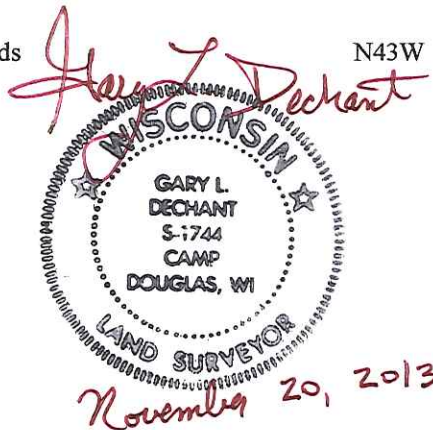 ds N43W
Gary L Dechant
WISCONSIN
GARY L.
DECHANT
S-1744
CAMP
DOUGLAS, WI
LAND SURVEYOR
November 20, 2013